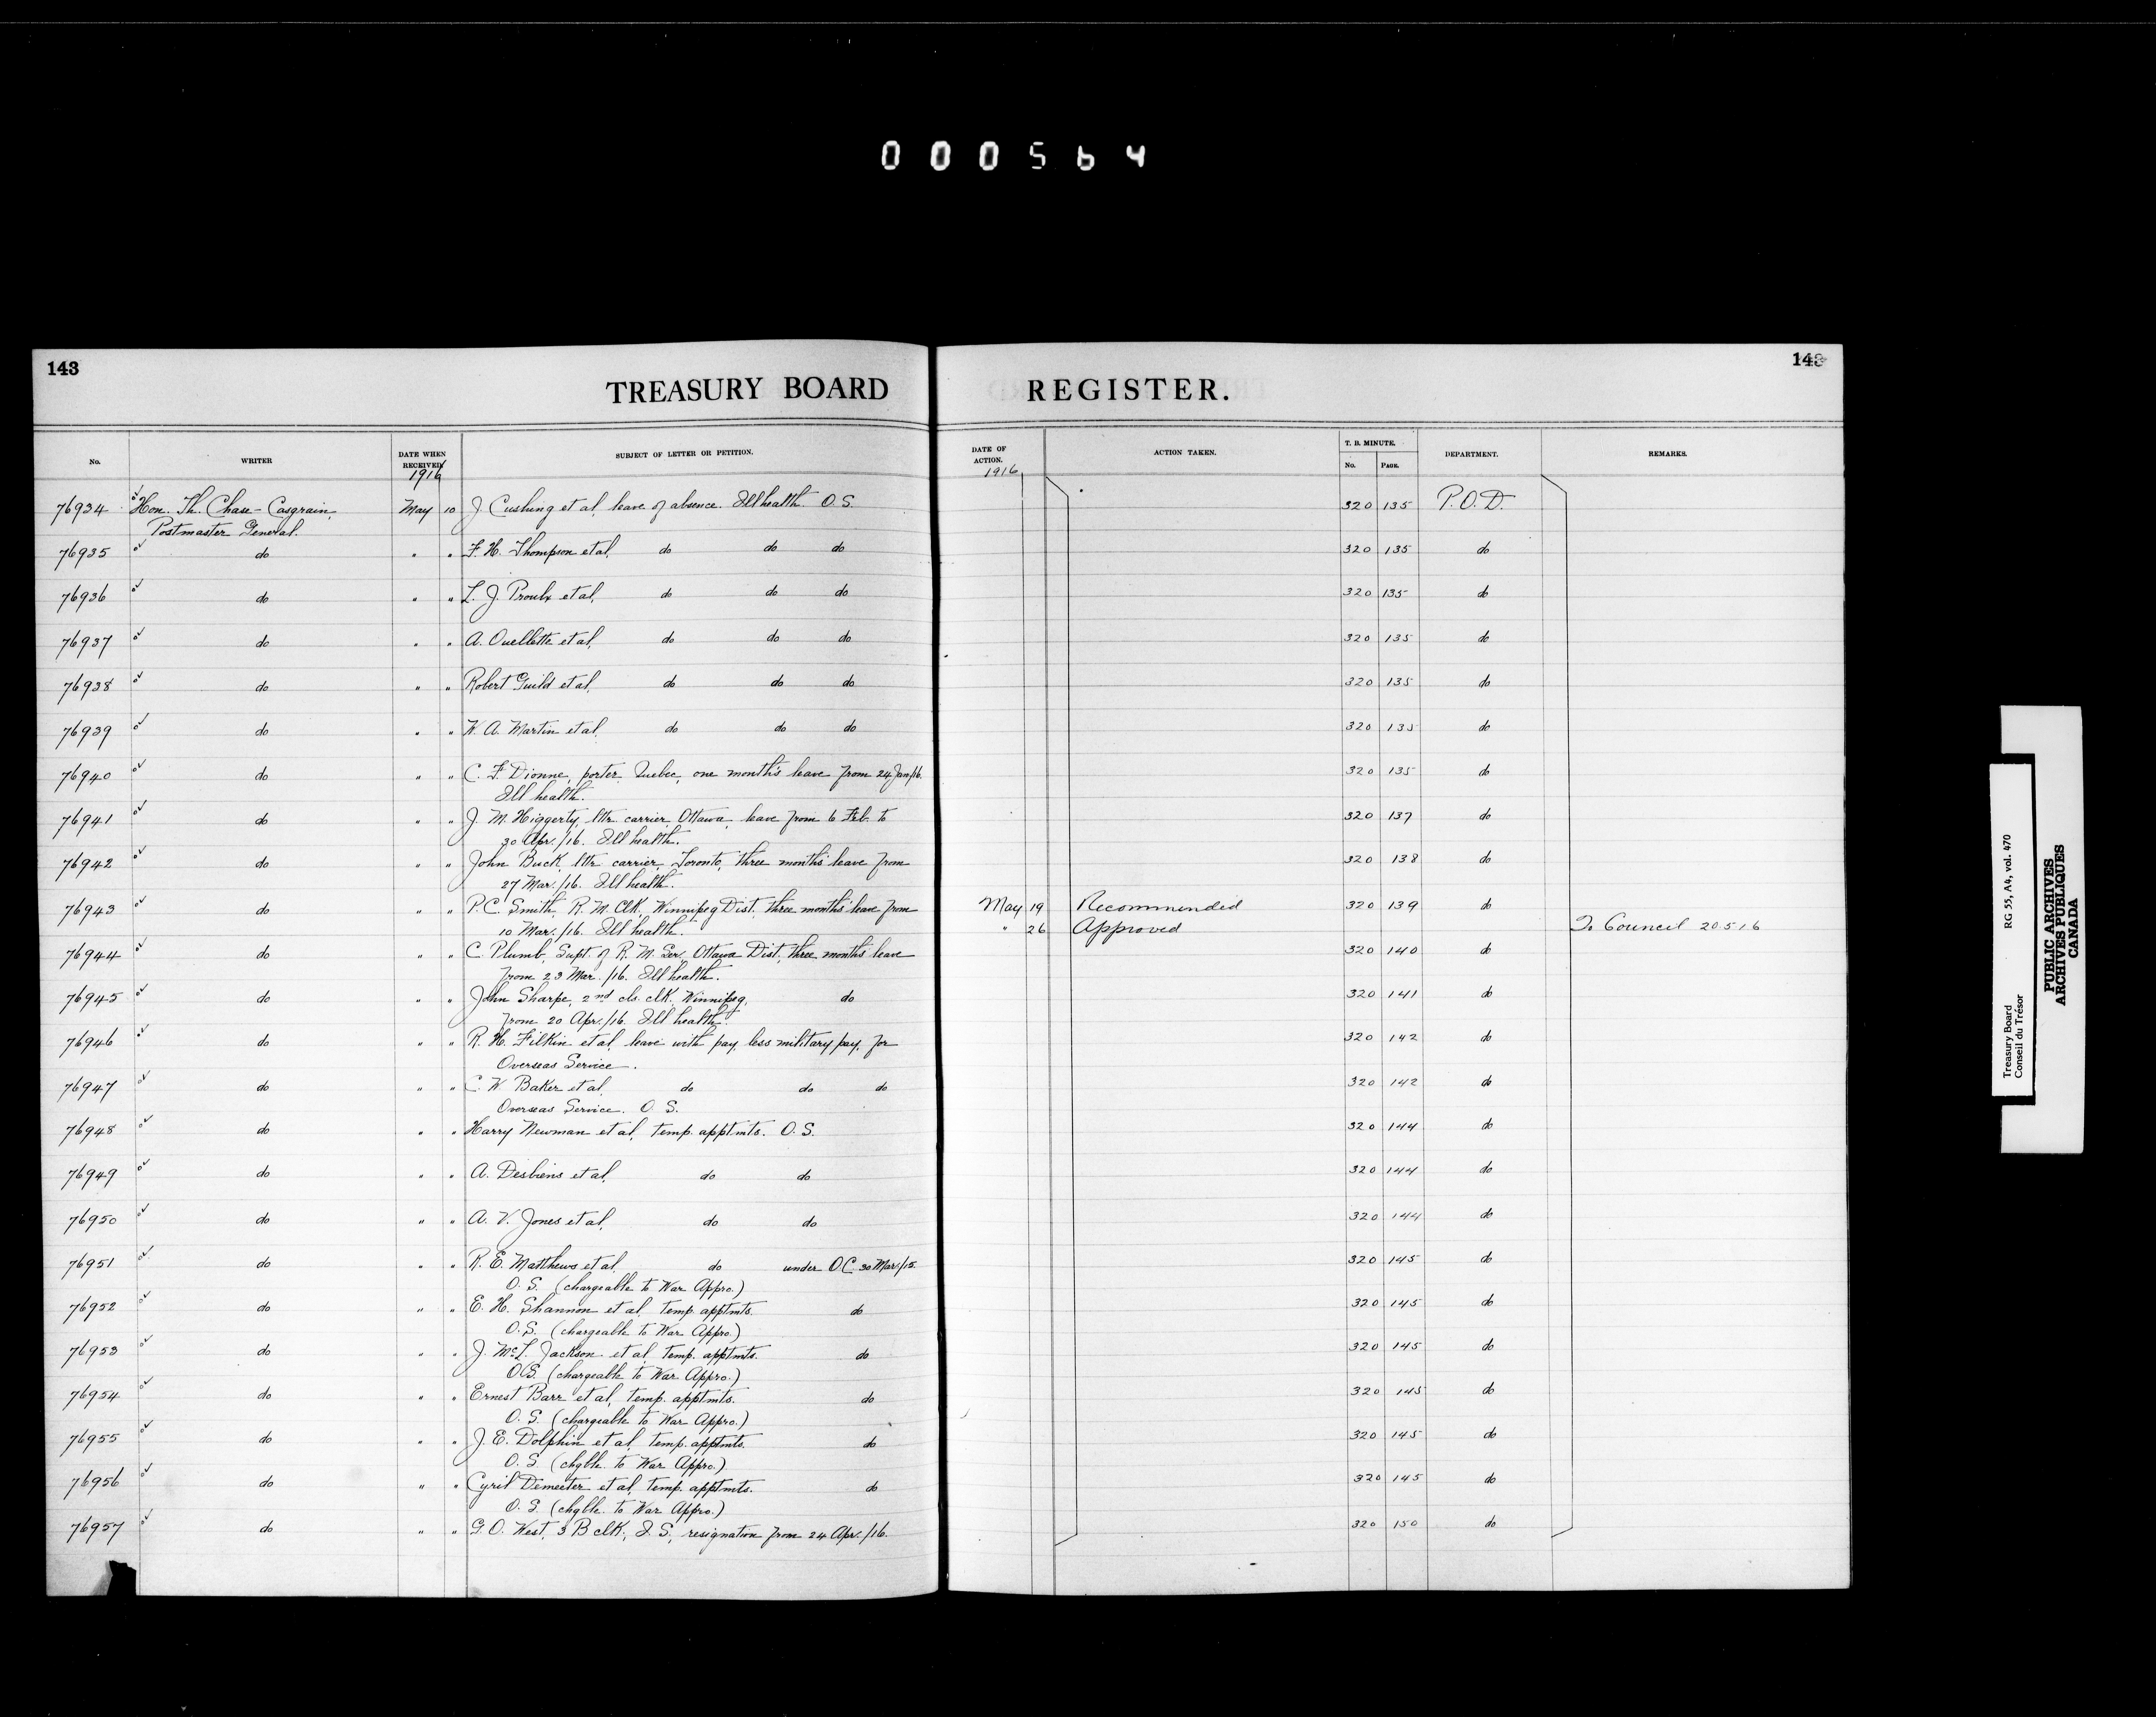 000564
143
143
TREASURY BOARD REGISTER.
No.
WRITER
DATE WHEN RECEIVED
SUBJECT OF LETTER OR PETITION.
DATE OF ACTION.
ACTION TAKEN.
T. B. MINUTE.
No. PAGE.
DEPARTMENT.
REMARKS.
1916
1916
76934 Hon. Th. Chase-Casgrain, May 10 J. Cushing et al, leave of absence. Ill health. O.S. 320 135 P.O.D.
Postmaster General.
76935 do " " F. H. Thompson et al, do do do 320 135 do
76936 do " " L. J. Proulx et al, do do do 320 135 do
76937 do " " A. Ouellette et al, do do do 320 135 do
76938 do " " Robert Guild et al, do do do 320 135 do
76939 do " " W. A. Martin et al, do do do 320 135 do
76940 do " " C. F. Dionne, porter, Quebec, one month's leave from 24 Jan/16. 320 135 do
Ill health.
76941 do " " J. M. Higgerty, lttr. carrier, Ottawa, leave from 6 Feb. to 320 137 do
30 Apr./16. Ill health.
76942 do " " John Buck, lttr. carrier, Toronto, three months' leave from 320 138 do
27 Mar./16. Ill health.
76943 do " " P. C. Smith, R. M. Clk, Winnipeg Dist, three months' leave from May 19 Recommended 320 139 do
10 Mar./16. Ill health. " 26 Approved To Council 20.5.16
76944 do " " C. Plumb, Supt. of R. M. Ser, Ottawa Dist, three months' leave 320 140 do
from 23 Mar./16. Ill health.
76945 do " " John Sharpe, 2nd cls. clk. Winnipeg, do 320 141 do
from 20 Apr./16. Ill health.
76946 do " " R. H. Filkin et al, leave with pay, less military pay, for 320 142 do
Overseas Service.
76947 do " " C. W. Baker et al, do do do 320 142 do
Overseas Service. O. S.
76948 do " " Harry Newman et al, temp. apptmts. O. S. 320 144 do
76949 do " " A. Desbiens et al, do do 320 144 do
76950 do " " A. V. Jones et al, do do 320 144 do
76951 do " " R. E. Matthews et al, do under O.C. 30 Mar./15. 320 145 do
O. S. (chargeable to War Appro.)
76952 do " " E. H. Shannon et al, temp. apptmts. do 320 145 do
O. S. (chargeable to War Appro.)
76953 do " " J. McL. Jackson et al, temp. apptmts. do 320 145 do
O.S. (chargeable to War Appro.)
76954 do " " Ernest Barr et al, temp. apptmts. do 320 145 do
O. S. (chargeable to War Appro.)
76955 do " " J. E. Dolphin et al, temp. apptmts. do 320 145 do
O. S. (chgble. to War Appro.)
76956 do " " Cyril Demeeter et al, temp. apptmts. do 320 145 do
O. S. (chgble. to War Appro.)
76957 do " " G. O. West, 3 B clk, I. S., resignation from 24 Apr./16. 320 150 do
Treasury Board RG 55, A4, vol. 470
Conseil du Trésor
PUBLIC ARCHIVES
ARCHIVES PUBLIQUES
CANADA